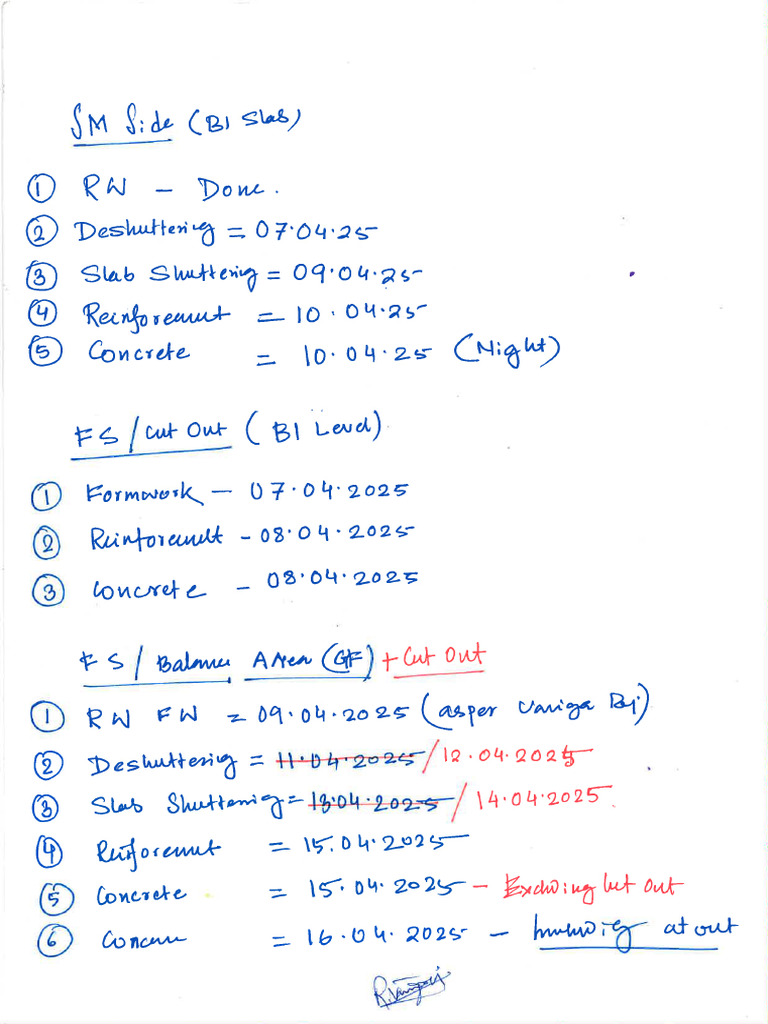 SM Side (B1 Slab)
① RW - Done.
② Deshuttering = 07.04.25
③ Slab Shuttering = 09.04.25
④ Reinforemut = 10.04.25
⑤ Concrete = 10.04.25 (Night)
FS/Cut Out (B1 Level)
① Formwork - 07.04.2025
② Reinforcemt - 08.04.2025
③ Concrete - 08.04.2025
FS/Balance Area (GF) + Cut Out
① RW FW = 09.04.2025 (asper
② Deshuttering = 11.04.2025 / 12.04.2025
③ Slab Shuttering = 13.04.2025 / 14.04.2025
④ Reinforemut = 15.04.2025
⑤ Concrete = 15.04.2025 - out
⑥ = 16.04.2025 - out